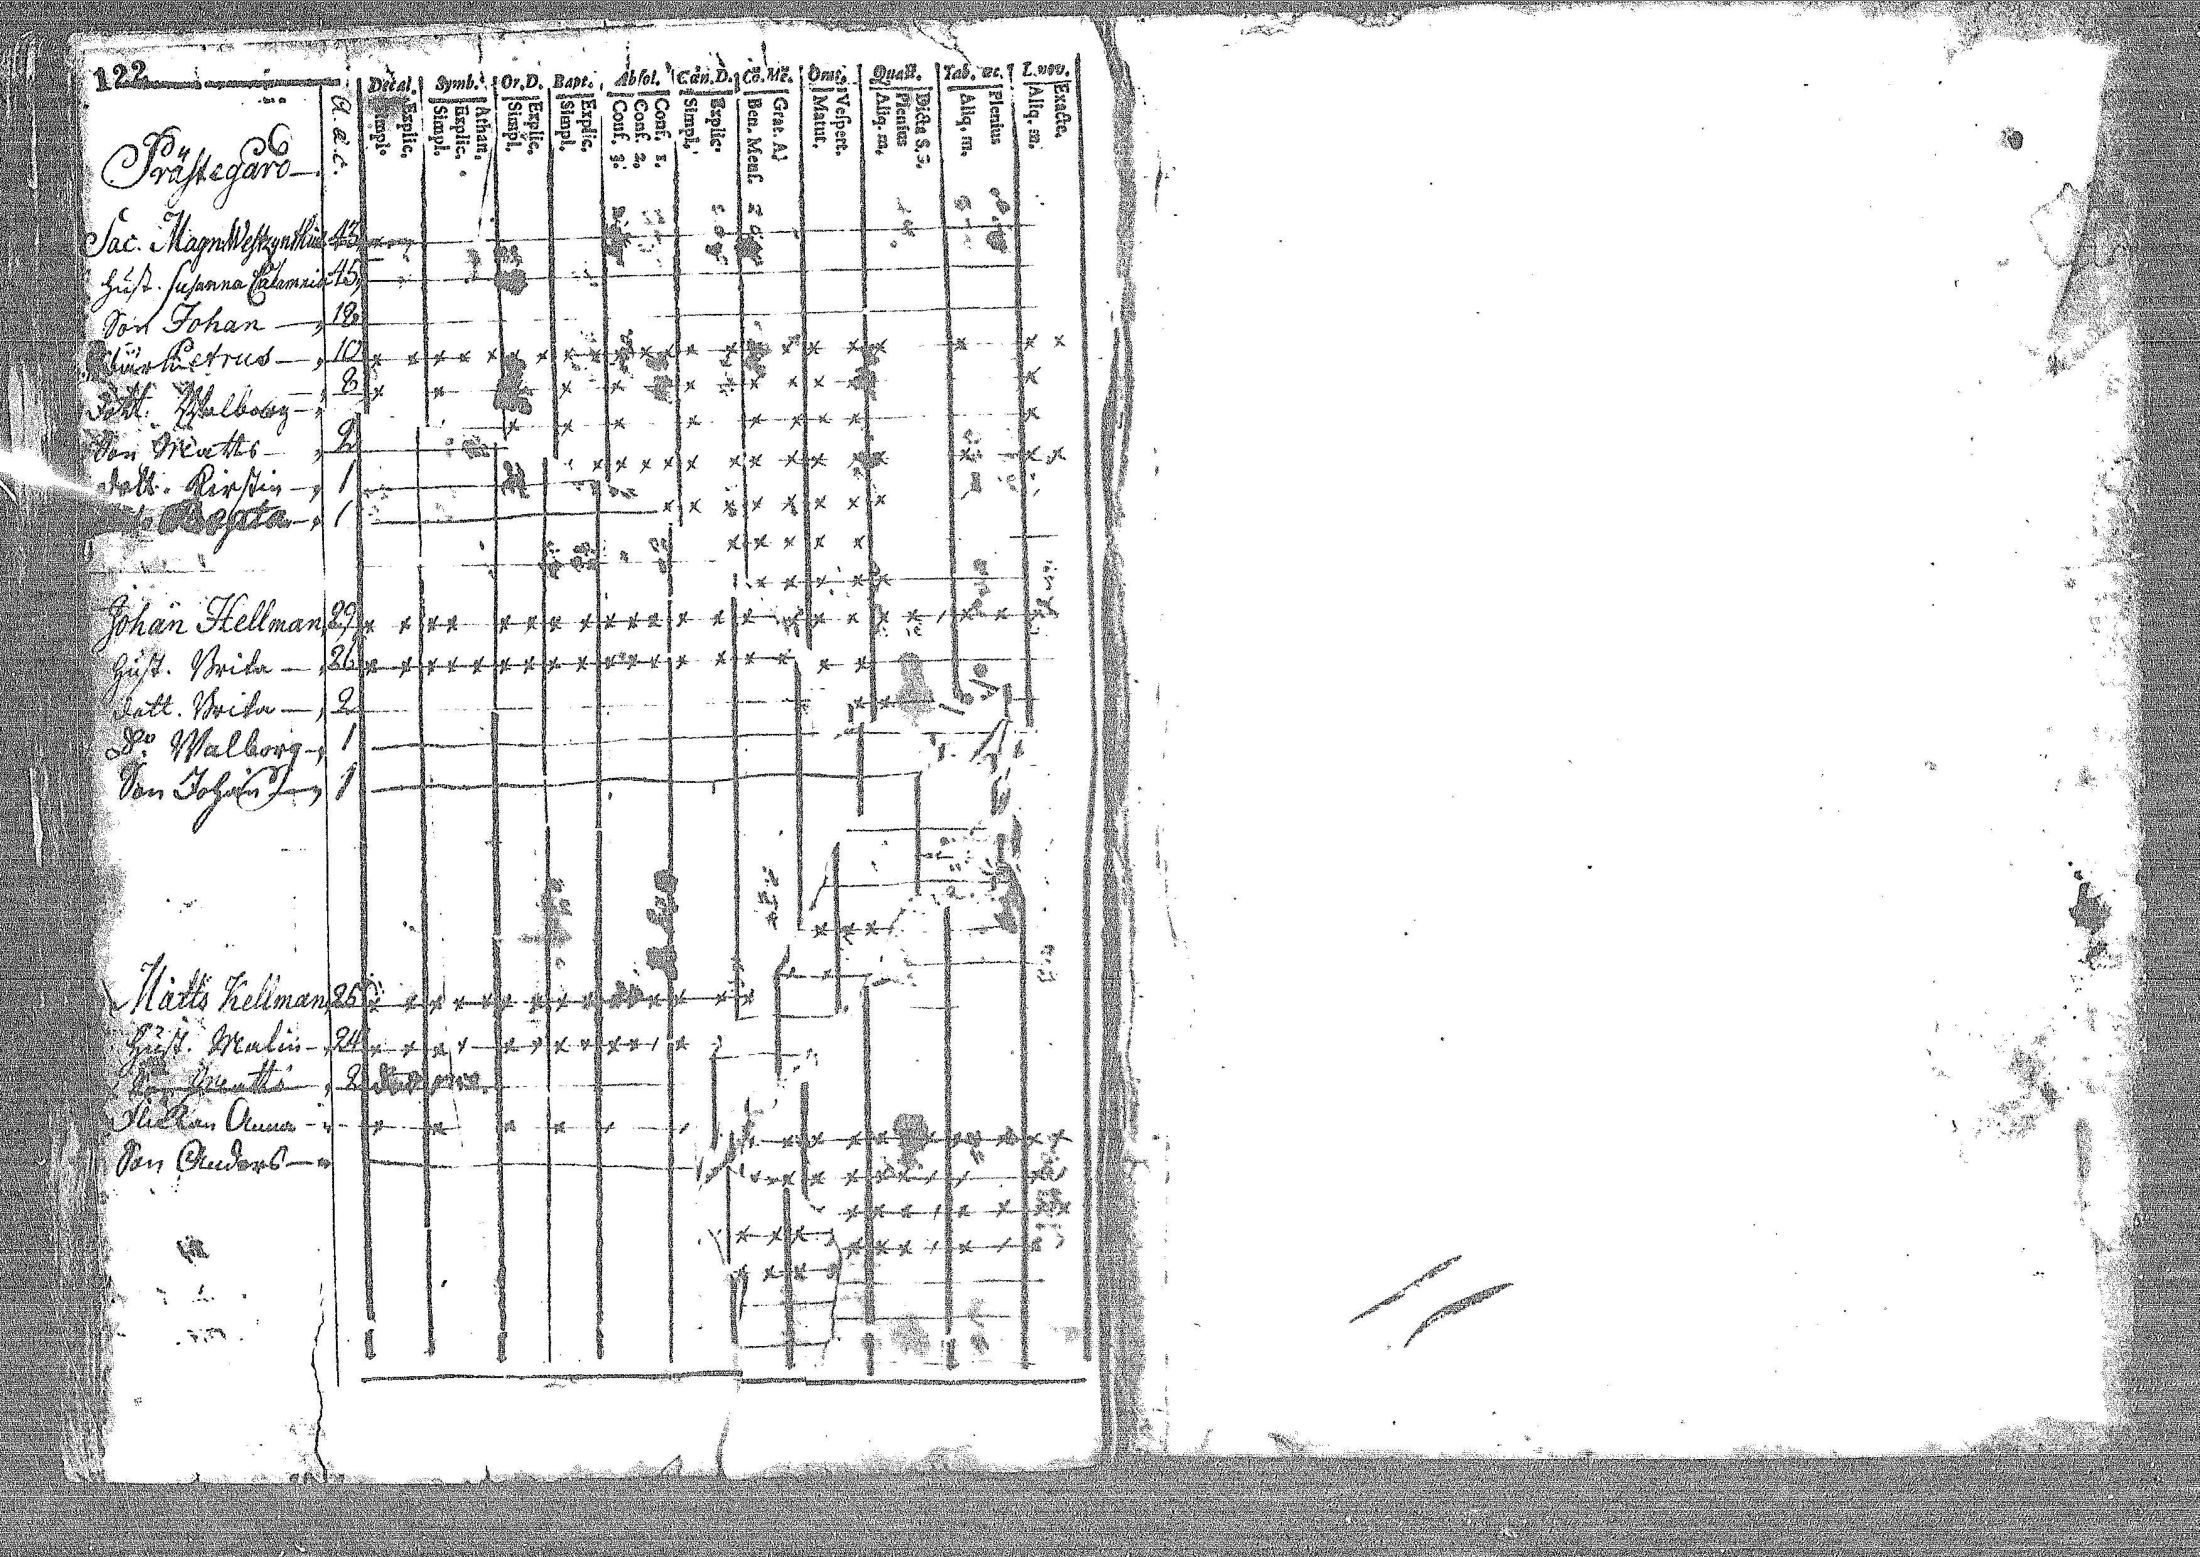 122
Decal. Symb. Or.D. Bapt. Absol. Can.D. Co.Me. Orat. Quæst. Tab. œc. L.nov.
a. æ. c. Simpl. Explic. Simpl. Explic. Athan. Simpl. Explic. Simpl. Explic. Conf. 3. Conf. 2. Conf. 1. Simpl. Explic. Ben. Mens. Grat. A. Matut. Vespert. Aliq. m. Plenius Dicta S.S. Aliq. m. Plenius Aliq. m. Exacte.
Prästegård
Jac. Magn. Westzynthius 43
Hust. Susanna 45
Son Johan 12
Petrus 10
Dott. Walborg 8
Son Matts 2
Dott. Kirstin 1
Beata 1
Johan Hellman 29
Hust. Brita 26
Dott. Brita 2
Do. Walborg 1
Son Johan 1
Matts Kellman 25
Hust. Malin 24
Son Matts 2
Flickan Anna
Son Anders